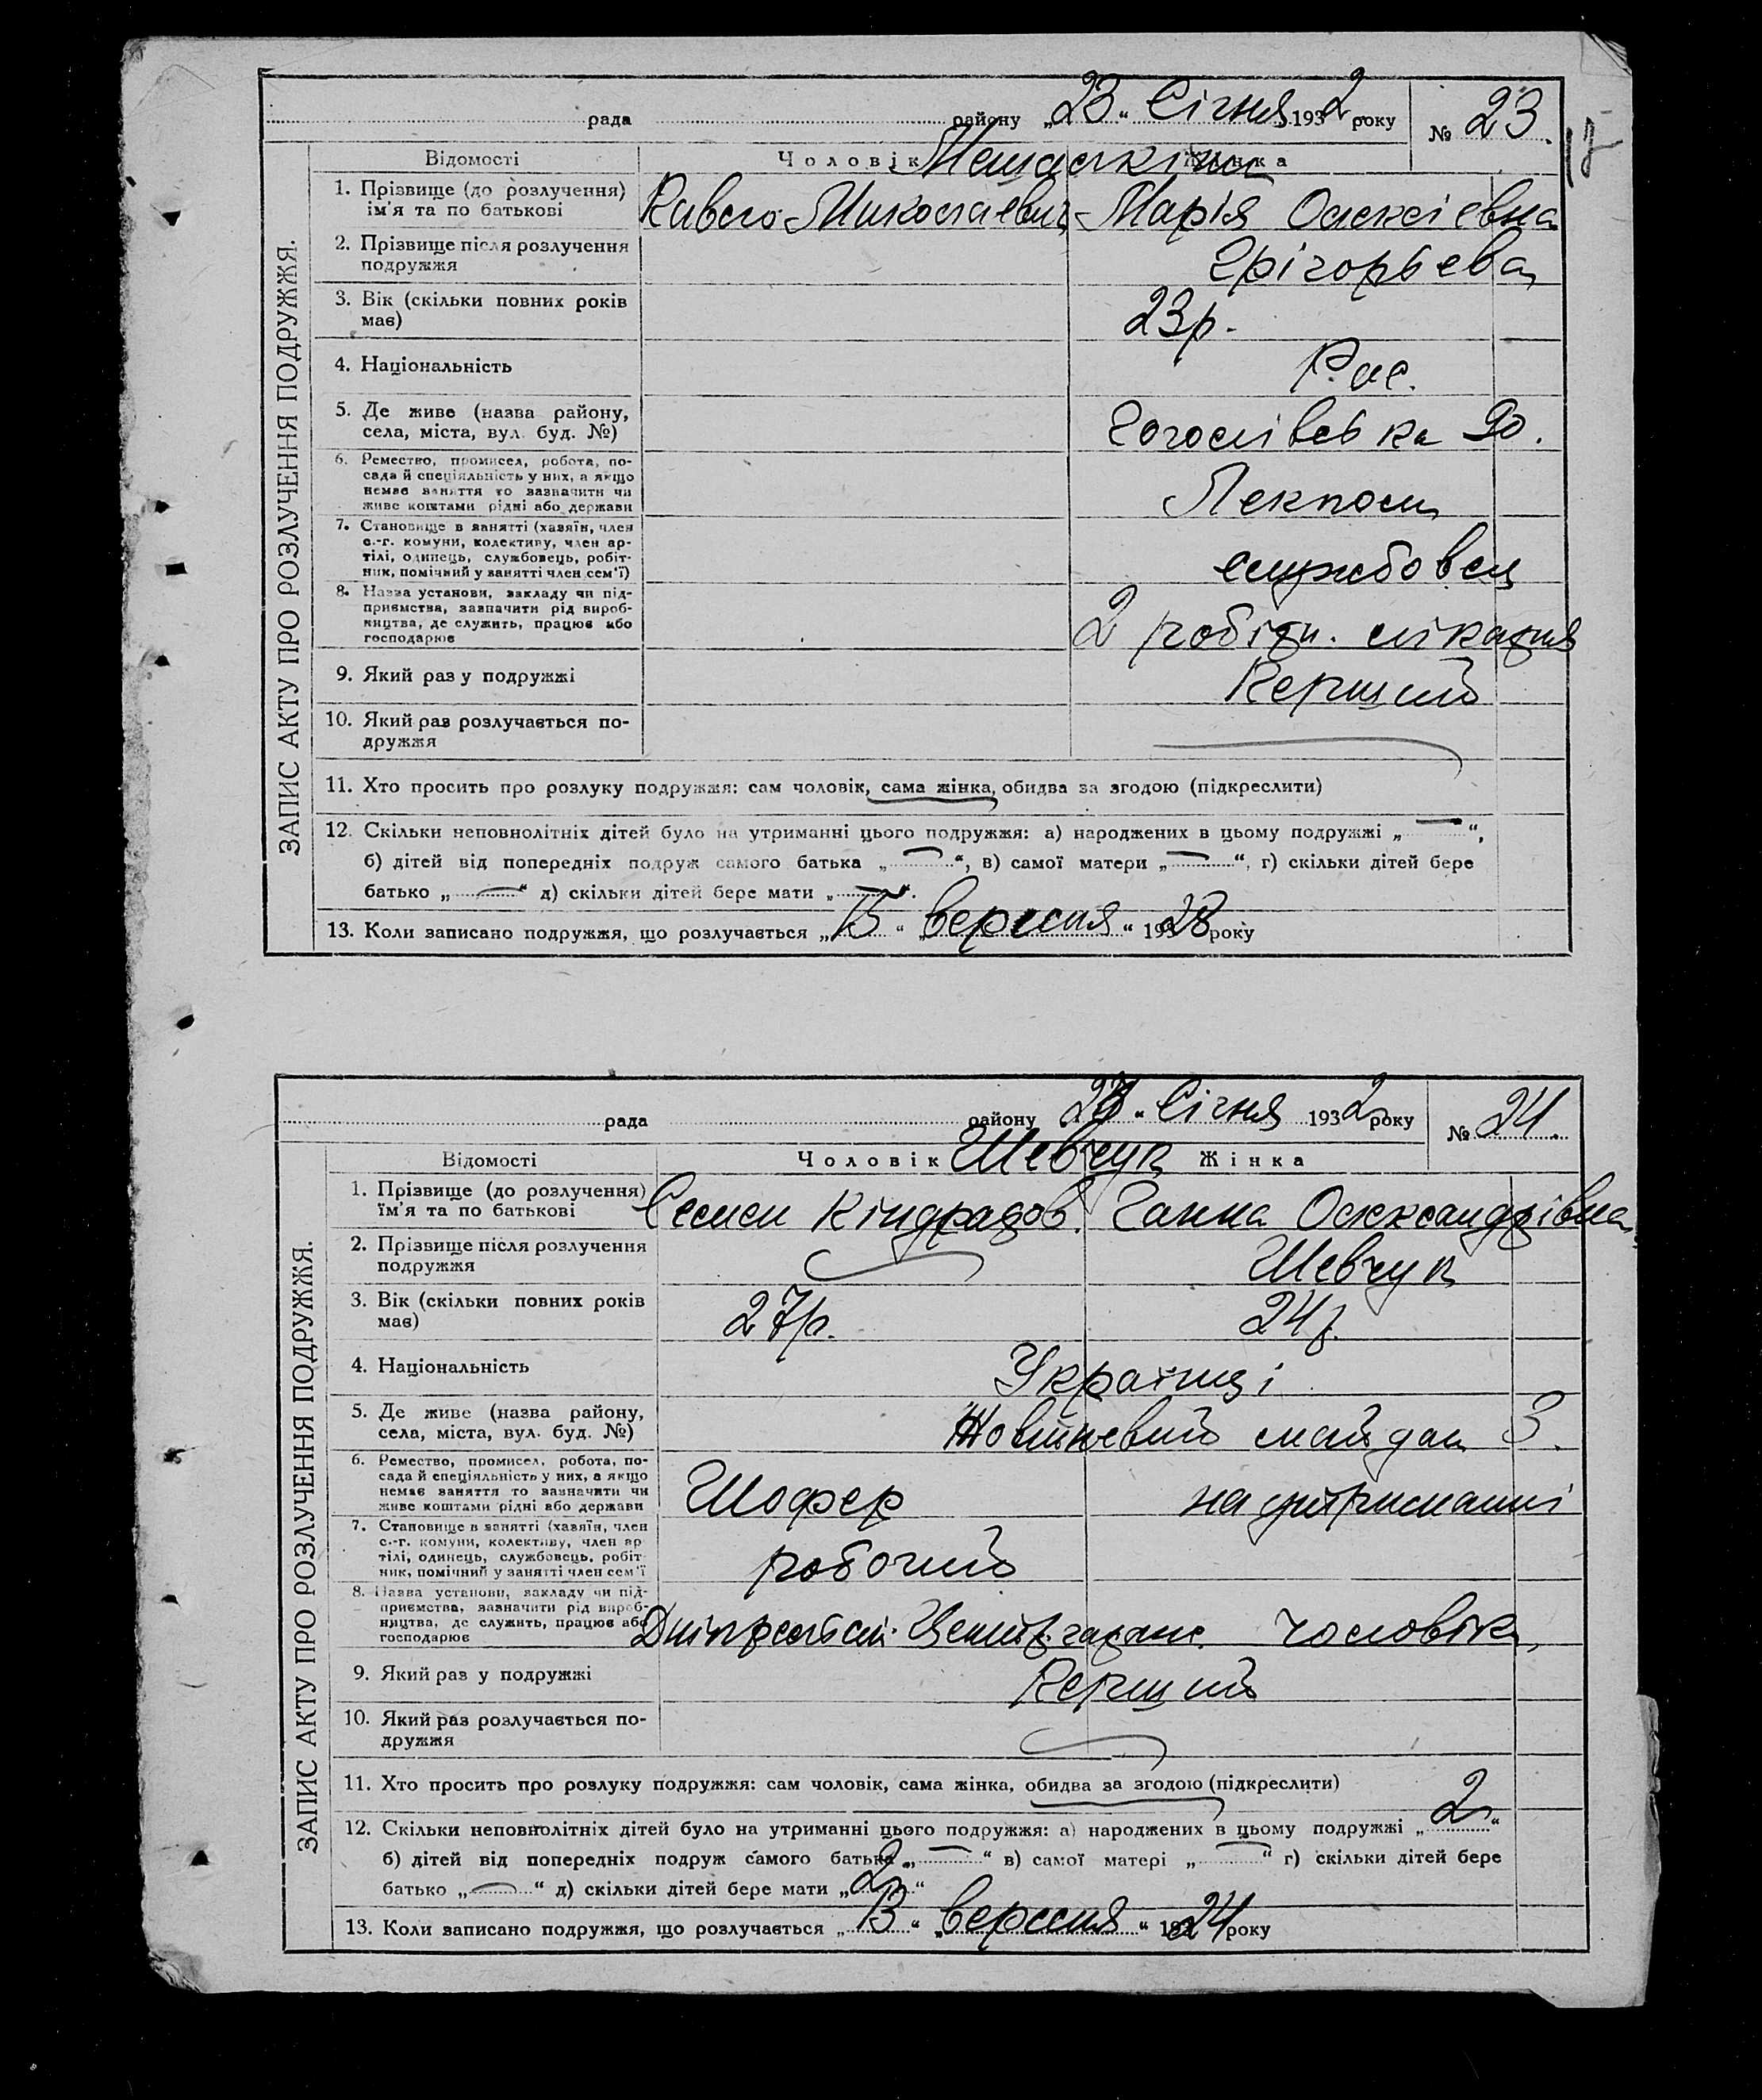 рада района „23“ Січня 1932 року № 23.
17
Відомості Чоловік Жінка
ЗАПИС АКТУ ПРО РОЗЛУЧЕННЯ ПОДРУЖЖЯ.
1. Прізвище (до розлучення) ім'я та по батькові Павло Миколаевич Марія Олексіевна
2. Прізвище після розлучення подружжя Грігорьева
3. Вік (скільки повних років має) 23р.
4. Національність Рос.
5. Де живе (назва району, села, міста, вул. буд. №) Гоголівська 90.
6. Ремество, промисел, робота, посада й спеціяльність у них, а якщо немає заняття то зазначити чи живе коштами рідні або держави Лекпом
7. Становище в занятті (хазяїн, член с.-г. комуни, колективу, член артілі, одинець, службовець, робітник, помічний у занятті член сем'ї) службовец
8. Назва установи, закладу чи підприємства, зазначити рід виробництва, де служить, працює або господарює 2 робітн. лікарня
9. Який раз у подружжі Перший
10. Який раз розлучається подружжя
11. Хто просить про розлуку подружжя: сам чоловік, сама жінка, обидва за згодою (підкреслити)
12. Скільки неповнолітніх дітей було на утриманні цього подружжя: а) народжених в цьому подружжі „—“,
б) дітей від попередніх подруж самого батька „—“, в) самої матери „—“, г) скільки дітей бере
батько „—“ д) скільки дітей бере мати „—“.
13. Коли записано подружжя, що розлучається „15“ „вересня“ 1928 року
рада району Січня 1932 року № 24.
Відомості Чоловік Шевчук Жінка
ЗАПИС АКТУ ПРО РОЗЛУЧЕННЯ ПОДРУЖЖЯ.
1. Прізвище (до розлучення) їм'я та по батькові Семен Кіндратов. Ганна Олександрівна
2. Прізвище після розлучення подружжя Шевчук
3. Вік (скільки повних років має) 27р. 24р.
4. Національність Українці
5. Де живе (назва району, села, міста, вул. буд. №) Жовтневий майдан 3.
6. Ремество, промисел, робота, посада й спеціяльність у них, а якщо немає заняття то зазначити чи живе коштами рідні або держави Шофер на утриманні
7. Становище в занятті (хазяїн, член с.-г. комуни, колективу, член артілі, одинець, службовець, робітник, помічний у занятті член сем'ї робочий
8. Назва установи, закладу чи підприємства, зазначити рід виробництва, де служить, працює або господарює чоловіка
9. Який раз у подружжі Перший
10. Який раз розлучається подружжя
11. Хто просить про розлуку подружжя: сам чоловік, сама жінка, обидва за згодою (підкреслити)
12. Скільки неповнолітніх дітей було на утриманні цього подружжя: а) народжених в цьому подружжі „2“
б) дітей від попередніх подруж самого батька „—“ в) самої матері „—“ г) скільки дітей бере
батько „—“ д) скільки дітей бере мати „2“
13. Коли записано подружжя, що розлучається „13“ „вересня“ 1924 року